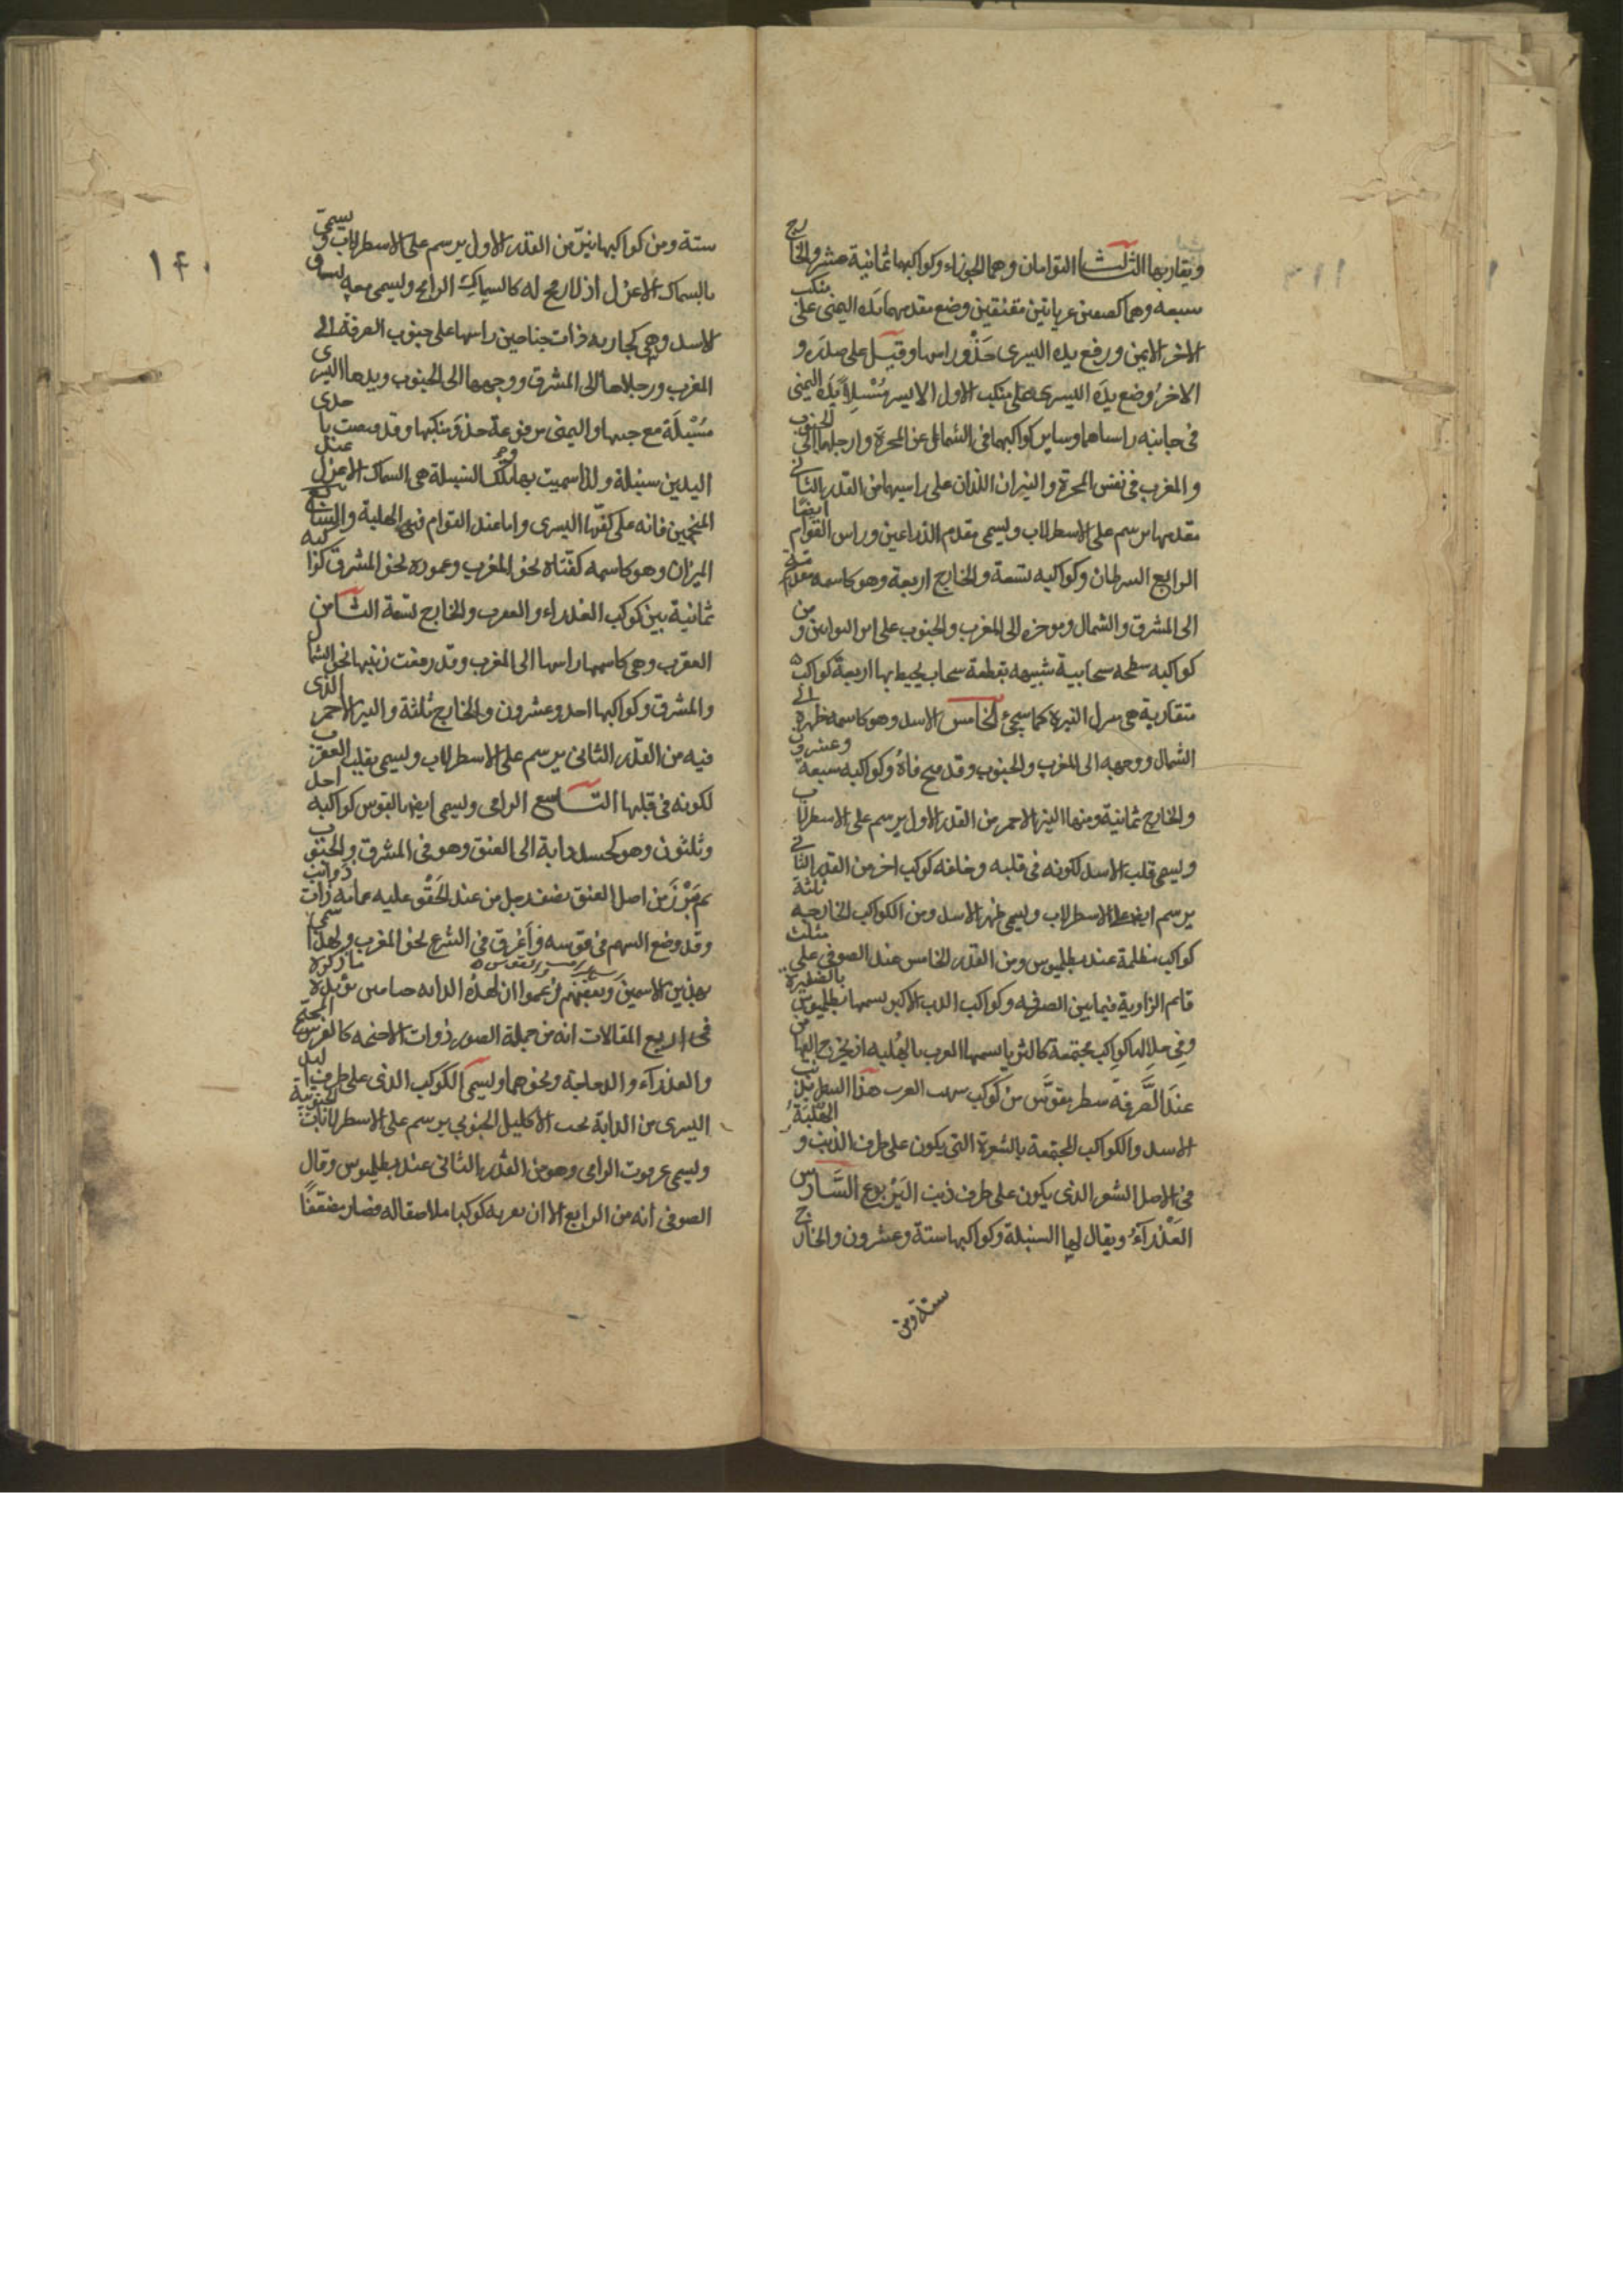 ويقاربها الثالث التوامان وهما الجوزاء وكواكبهما ثمانية عشر والخارج
سبعه وهما كصبيين عريانين معتنقين وضع مقدمهما يده اليمنى على منكب
الاخر الايمن ورفع يده اليسرى حذو راسها وقيل على صدره و
الاخر وضع يده اليسرى على منكب الاول الايسر مُسْبِلاً يَدَه اليمنى
في جانبه راساهما وساير كواكبهما في الشمال عن المجرة وارجلهما الى الجنوب
والمغرب في نفس المجرة والنيران اللذان على راسيهما من القدر الثانى
مقدمهما يرسم على الاسطرلاب ويسمى مقدم الذراعين وراس التوام ايضا
الرابع السرطان وكواكبه تسعة والخارج اربعة وهو كاسمه مقدمه
الى المشرق والشمال وموخره الى المغرب والجنوب على اثر التوامين و من
كواكبه سحابية شبيهه بقطعة سحاب يحيط بها اربعة كواكب
متقاربة هى منزل النثره كما سيجئ الخامس الاسد وهو كاسمه ظهره الى
الشمال ووجهه الى المغرب والجنوب وقد فتح فاهُ وكواكبه سبعة وعشرون
والخارج ثمانية ومنها النير الاحمر من القدر الاول يرسم على الاسطرلاب
ويسمى قلب الاسد لكونه فى قلبه وخلفه كوكب اخر من القدر الثانى
يرسم ايضا على الاسطرلاب ويسمى ظهر الاسد ومن الكواكب الخارجه ثلثة
كواكب مظلمة عند بطلميوس ومن القدر الخامس عند الصوفى على مثلث
قايم الزاوية فيما بين الصرفه وكواكب الدب الاكبر يسمها بطلميوس بالضفيرة
وفى خلالها كواكب مجتمعة كالثريا يسمها العرب بالهُلبه اذ يخرج من
عند الصَّرفَه سطر مقوَّس من كوكب العرب هذا السطر بذنب
الاسد والكواكب المجتمعة بالشعرة التى يكون على طرف الذنب و الهُلْبَةُ
فى الاصل الشعر الذى يكون على طرف ذنب اليَرْبوع السَّادس
العَذْرَآءُ ويقال لها السنبلة وكواكبها ستة وعشرون والخارج
ستة ومن
١٤٠
ستة ومن كواكبها نيّر من القدر الاول يرسم على الاسطرلاب ويسمى
بالسماك الاعزل اذ لا رمح له كالسماك الرامح ويسمى معه بساق
الاسد وهى كجارية ذات جناحين راسها على جنوب الصرفة الى
المغرب ورجلاها الى المشرق ووجهها الى الجنوب ويدها اليسرى
مُسْبَلَة مع جنبها واليمنى مرفوعة حذو منكبها وقد قبضت باحدى
اليدين سنبلة ولذا سميت بها وتلك السنبلة هى السماك الاعزل عند
المنجمين فانه على كفّها اليسرى واما عند العوام فهى الهلبة والسابع
الميزان وهو كاسمه كفّتاه نحو المغرب وعموده نحو المشرق كواكبه
ثمانية بين كوكب العذراء والعقرب والخارج تسعة الثامن
العقرب وهى كاسمها راسها الى المغرب وقد رفعت ذنبها نحو الشمال
والمشرق وكواكبها احد وعشرون والخارج ثلثة والنير الاحمر الذى
فيه من القدر الثانى يرسم على الاسطرلاب ويسمى بقلب العقرب
لكونه فى قلبها التاسع الرامى ويسمى ايضا بالقوس كواكبه احد
وثلثون وهو كجسد دابة الى العنق وهو فى المشرق والجنوب
ثم بَرَزَ من اصل العنق نصف رجل من عند الحَقْو عليه عمامه ذات ذوائب
وقد وضع السهم فى قوسه وأَغرق فى النزع نحو المغرب ولهذا سمى
بهذين الاسمين وبعضهم زعموا ان لهذه الدابه جناحين يؤيده ما ذكره
فى اربع المقالات انه من جملة الصور ذوات الاجنحه كالفرس المجنح
والعذرآء والدجاجة ونحوهما ويسمى الكوكب الذى على طرف اليد
اليسرى من الدابة تحت الاكليل الجنوبى يرسم على الاسطرلابات الجنوبية
ويسمى عرقوت الرامى وهو من القدر الثانى عند بطلميوس وقال
الصوفى انه من الرابع الا ان بقربه كوكبا ملاصقا له فصار مضعّفاً